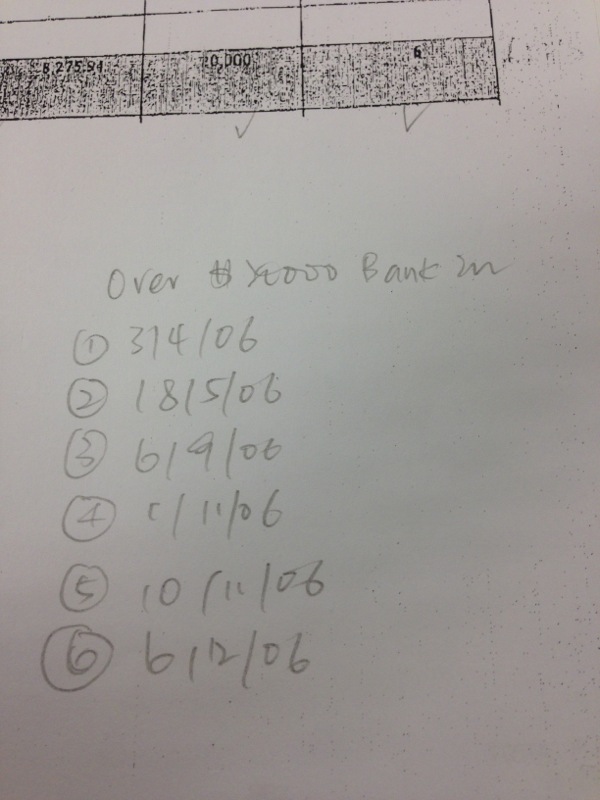 8 275.94 20,000 6
Over $ 20000 Bank in
① 3/4/06
② 18/5/06
③ 6/9/06
④ 1/11/06
⑤ 10/11/06
⑥ 6/12/06